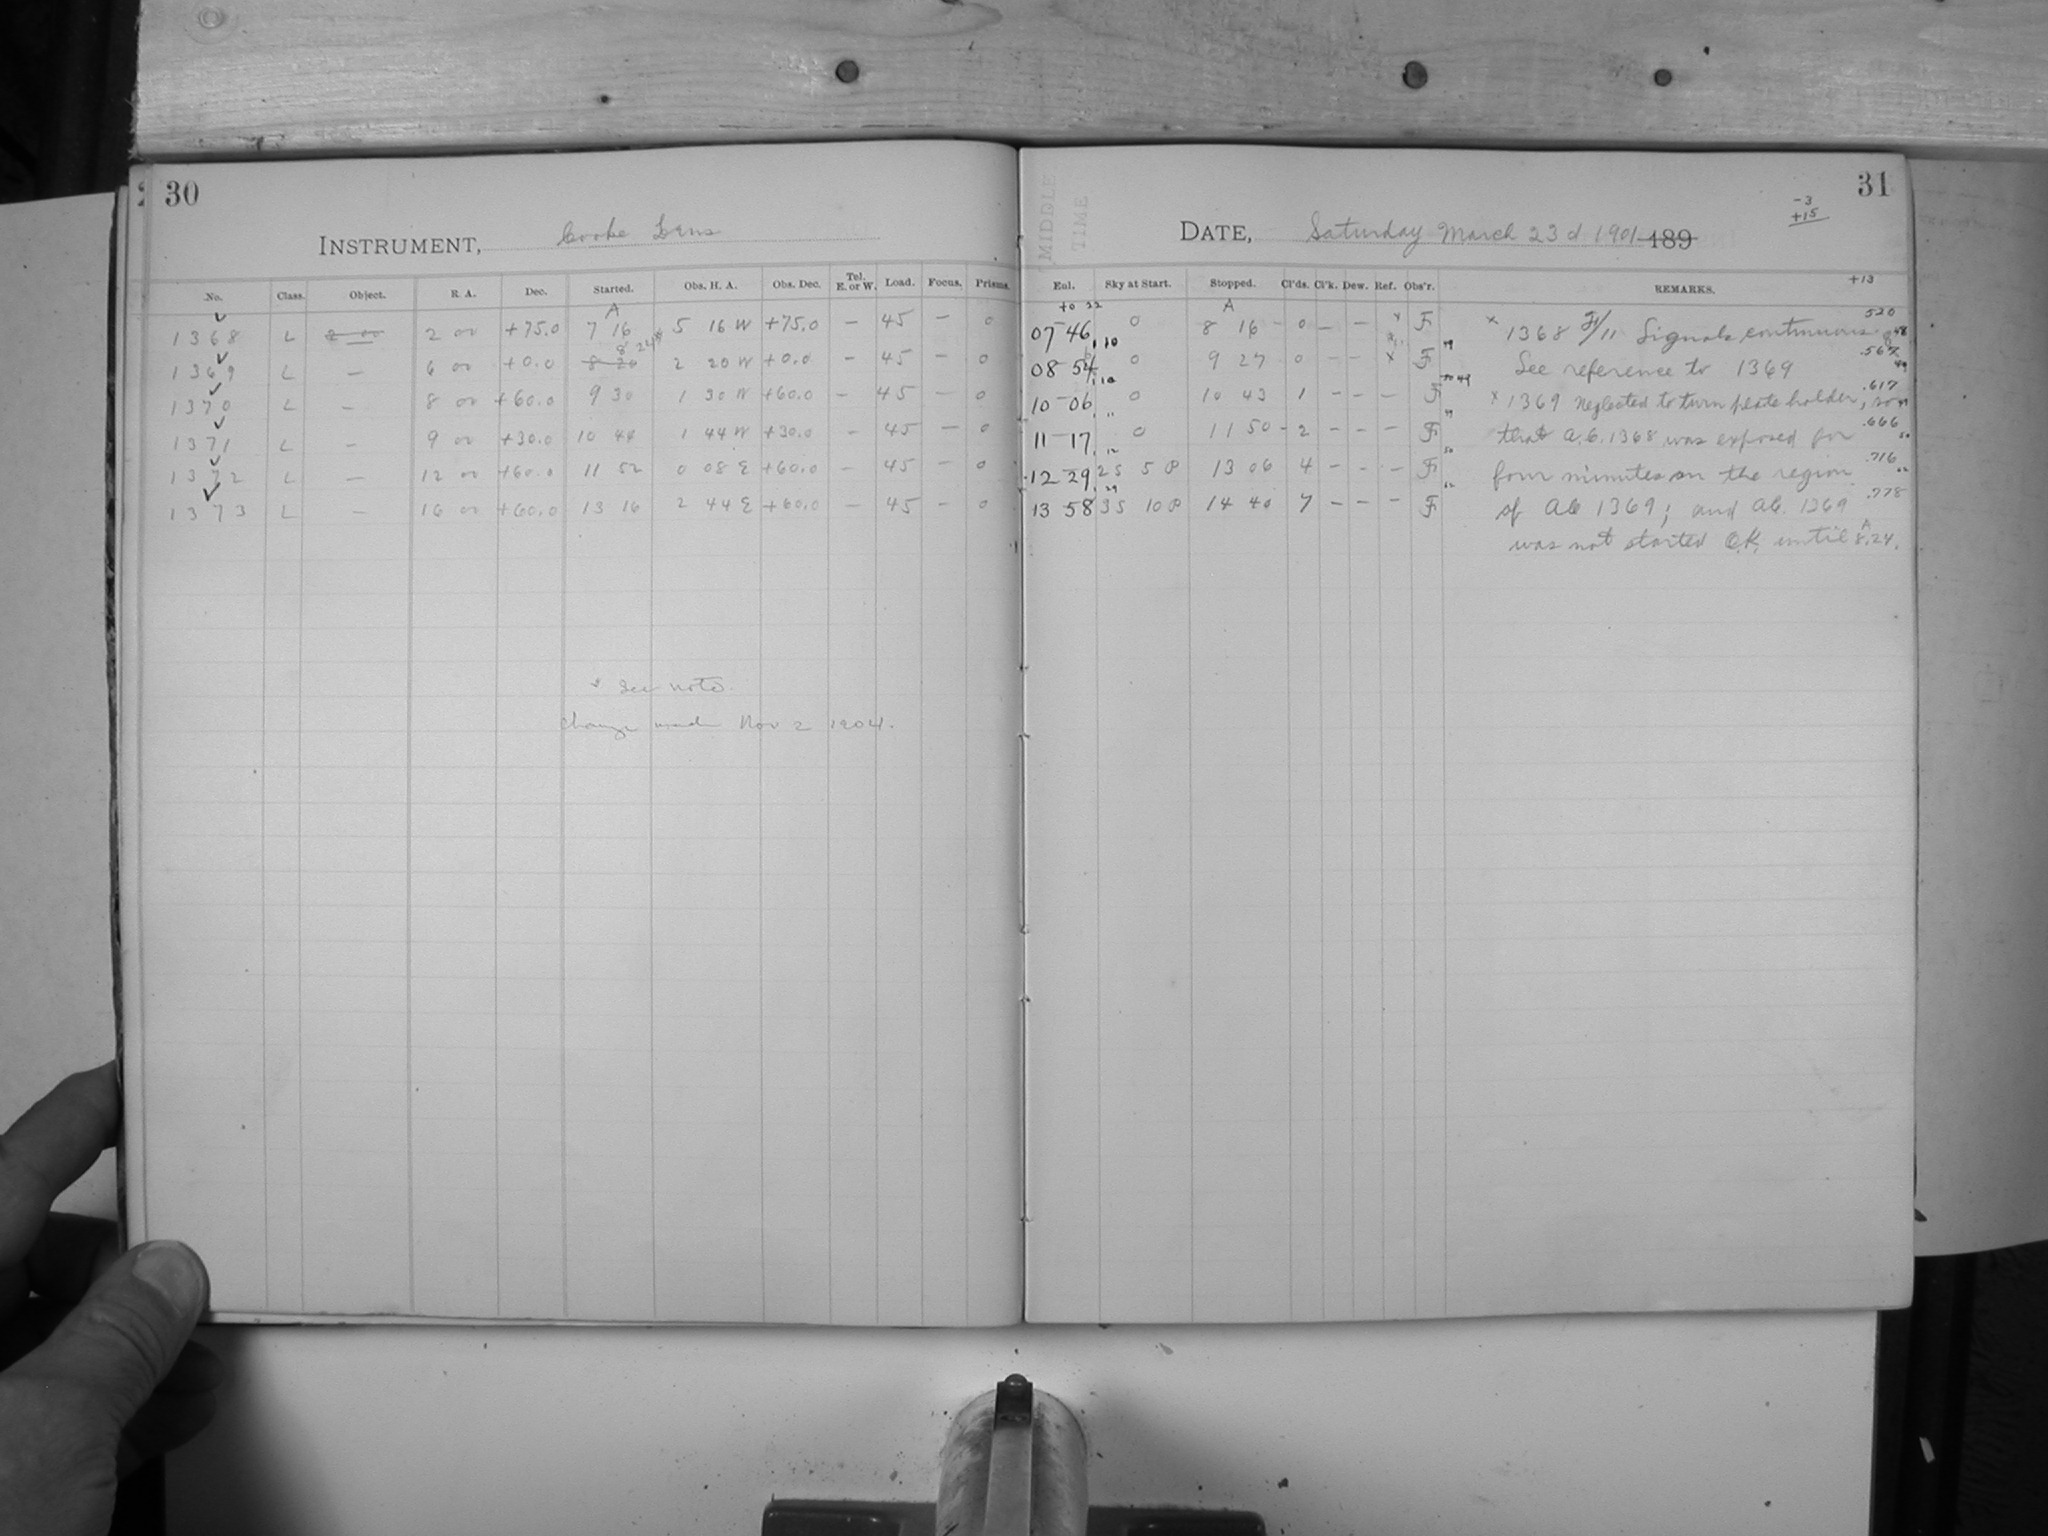 30
INSTRUMENT, Cooke Lens
No. Class. Object. R. A. Dec. Started. Obs. H. A. Obs. Dec. Tel. E. or W. Load. Focus. Prisms.
A
1368 L 2 00 2 00 +75.0 7 16 5 16 W +75.0 — 45 — 0
8 24
1369 L — 6 00 +0.0 8 20 2 20 W +0.0 — 45 — 0
1370 L — 8 00 +60.0 9 30 1 30 W +60.0 — 45 — 0
1371 L — 9 00 +30.0 10 44 1 44 W +30.0 — 45 — 0
1372 L — 12 00 +60.0 11 52 0 08 E +60.0 — 45 — 0
1373 L — 16 00 +60.0 13 16 2 44 E +60.0 — 45 — 0
* See note.
Change made Nov 2 1904.
31
MIDDLE
TIME
-3
+15
DATE, Saturday March 23d 1901 189
+13
Exl. Sky at Start. Stopped. Cl'ds. Cl'k. Dew. Ref. Obs'r. REMARKS.
+0 22 A
07-46 0 8 16 - 0 — — x F
08 54 0 9 27 0 - - x F
10-06 0 10 43 1 - - - F
11-17 0 11 50 - 2 - - - F
12-29 2S 5P 13 06 4 - - - F
13 58 3S 10P 14 40 7 - - - F
x 1368 F/11 Signals continuous .520
See reference to 1369 .567
x 1369 Neglected to turn plate holder, so .617
that A.C. 1368 was exposed for .666
four minutes on the region .716
of AC 1369; and AC. 1369 .778
was not started O.K. until 8.24.